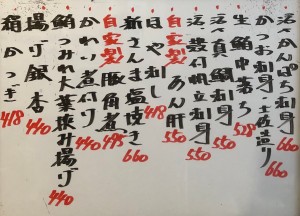 活〆かんぱち刺身 660
かつお刺身 土佐造り 660
生鮪中落ち 528
活〆真鯛刺身 550
活〆殻付帆立刺身 550
自家製 あん肝 550
ほや刺し 418
新さんま塩焼き 660
自家製 豚角煮 495
かれい煮付け 440
鮪つみれ大葉挟み揚げ 440
揚げ銀杏 440
栃尾 418